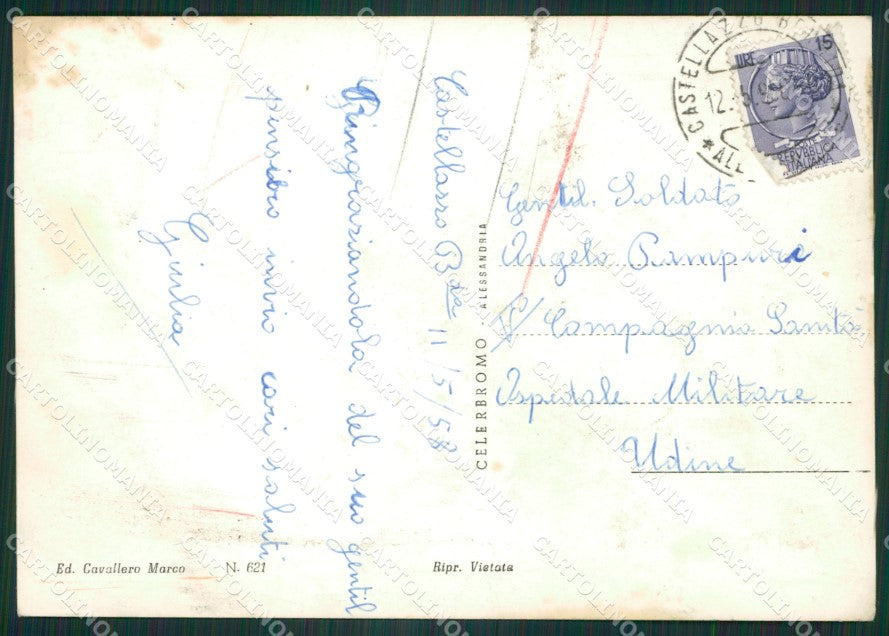 Castellazzo Bda 11/5/58
Ringraziandola del suo gentil
pensiero invio cari saluti
Giulia
CASTELLAZZO
12.
LIRE 15
REPVBBLICA
ITALIANA
Gentil. Soldato
Angelo Rampini
V/ Compagnia Sanità
Ospedale Militare
Udine
CELERBROMO - ALESSANDRIA
Ed. Cavallero Marco N. 621
Ripr. Vietata
CARTOLINOMANIA